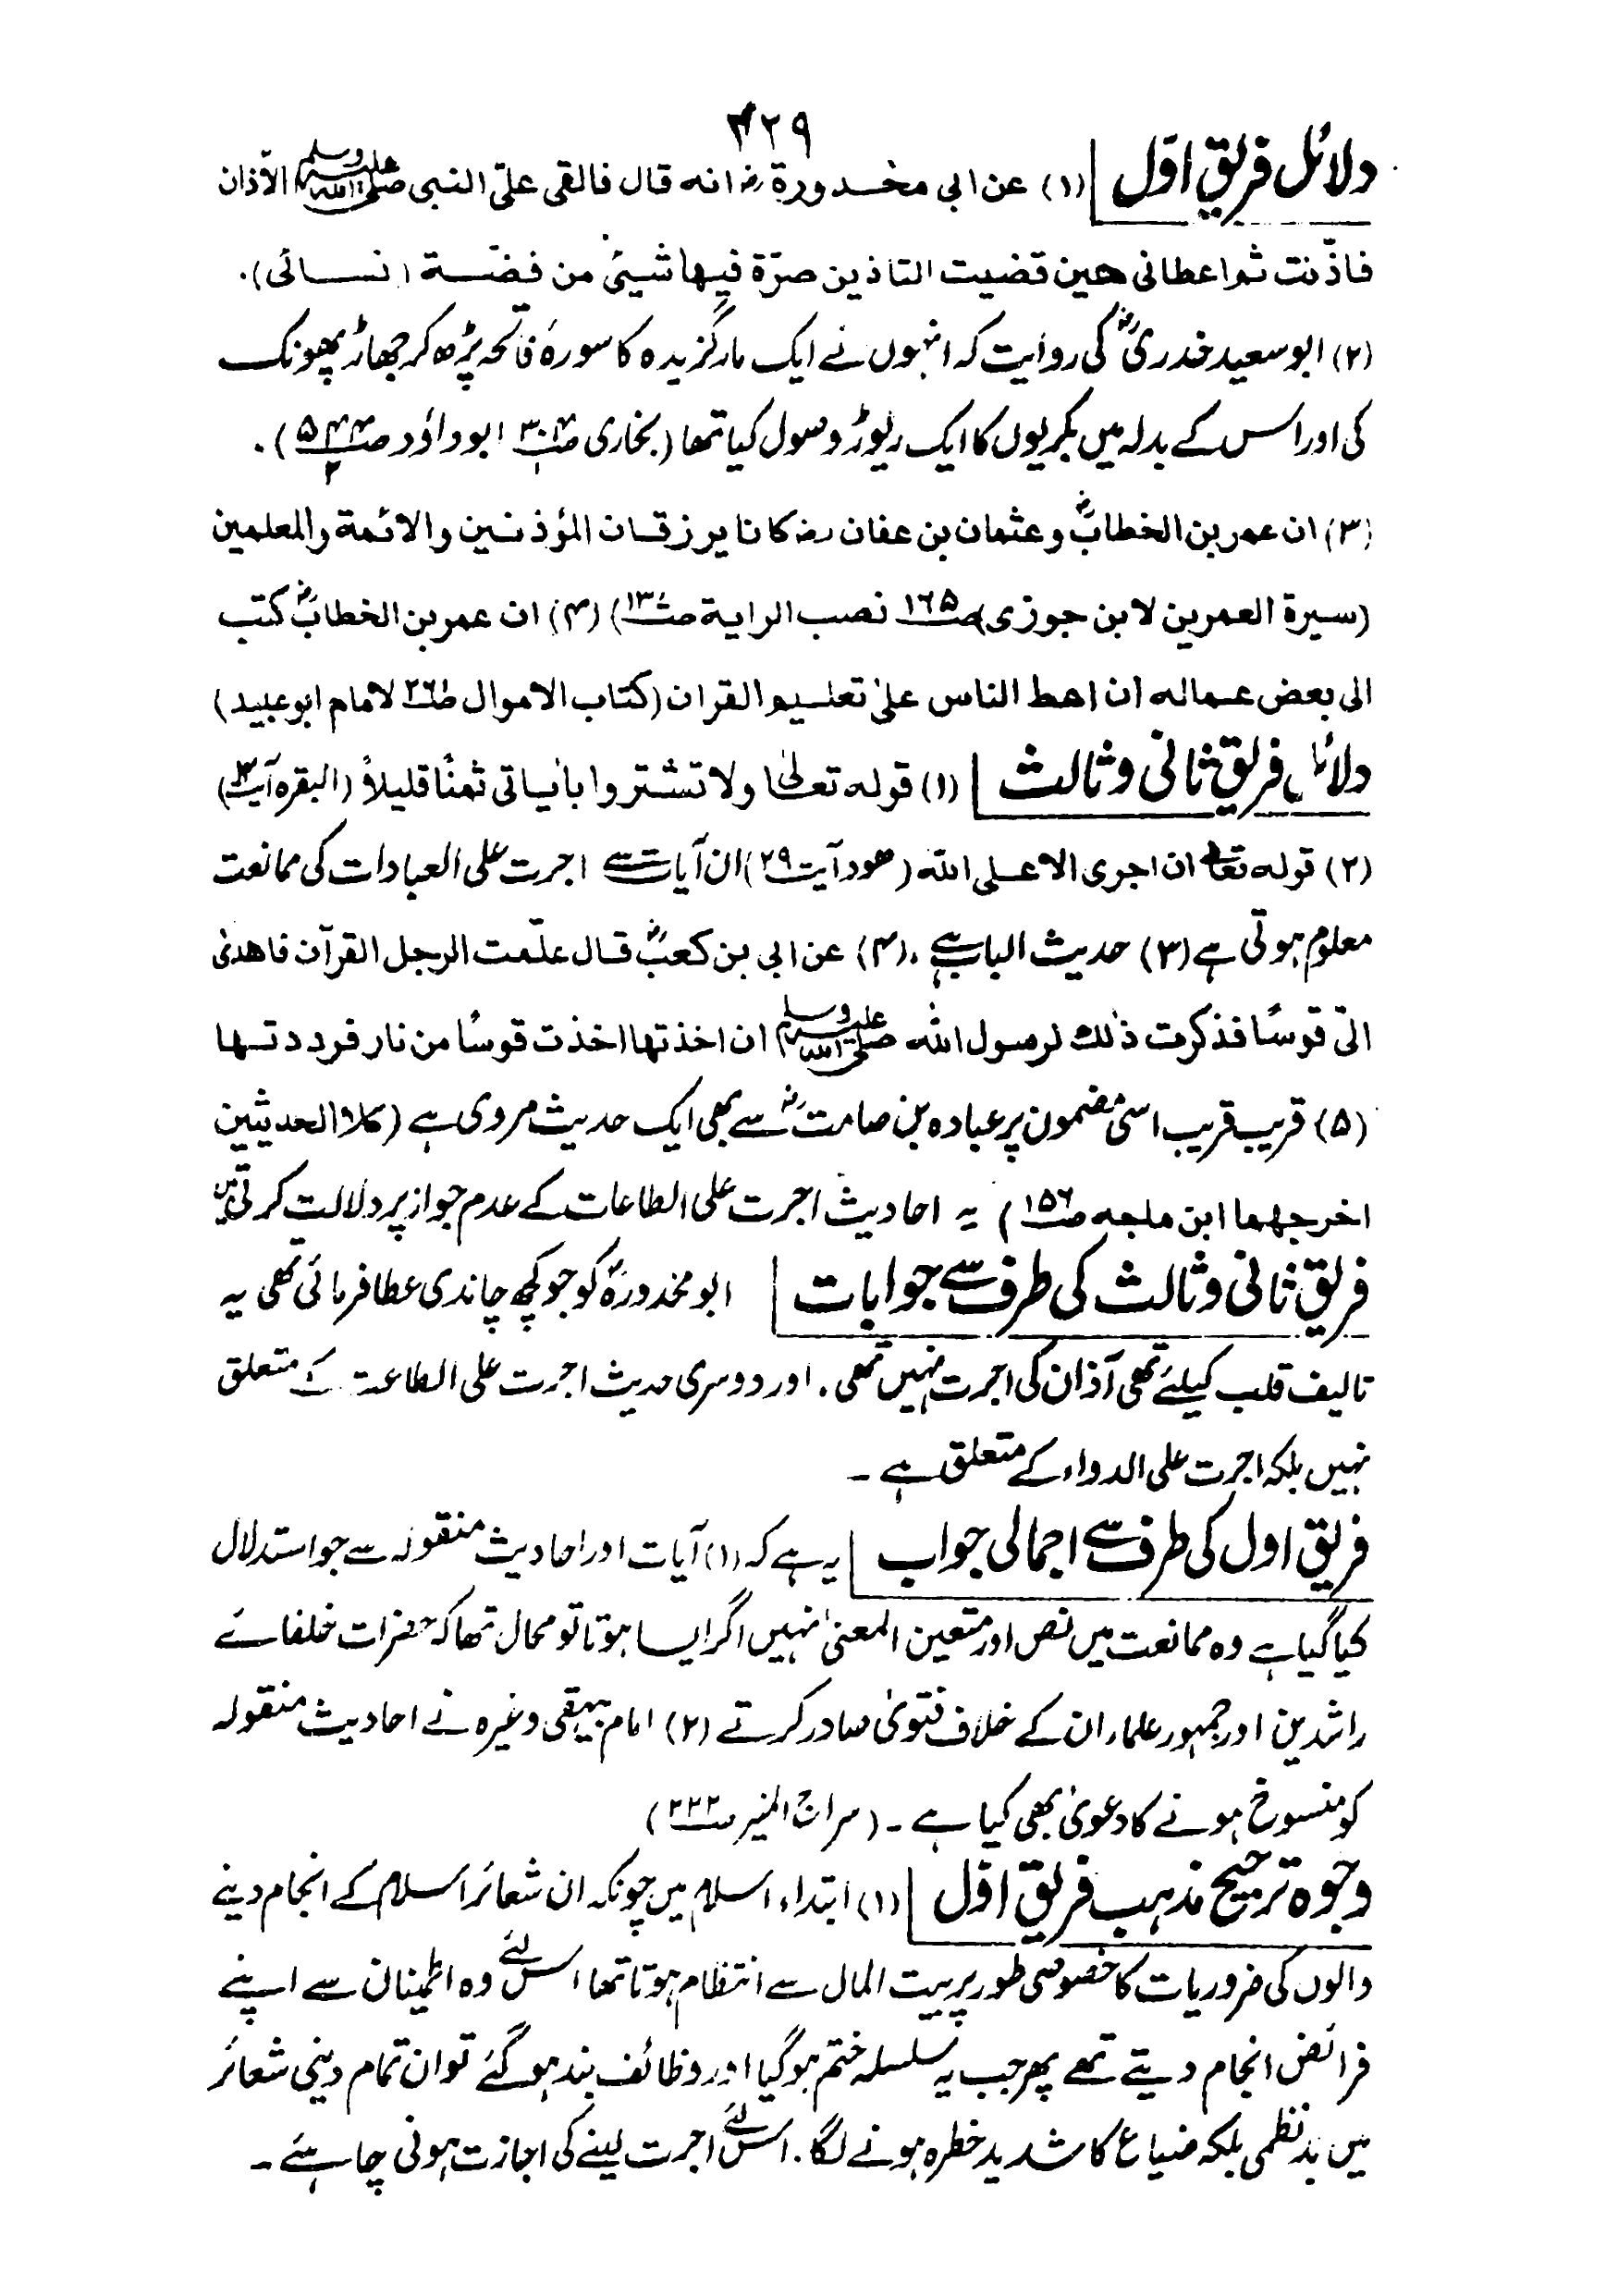 ۴۲۹
دلائل فریق اوّل (۱) عن ابی مخدورة رض انه قال فالقی علیّ النبی صلی اللہ علیہ وسلم الآذان
فاذّنت ثم اعطانی حین قضیت التاذین صرّة فیها شیئ من فضّة (نسائی).
(۲) ابو سعید خدریؓ کی روایت کہ انہوں نے ایک مارگزیدہ کا سورۂ فاتحہ پڑھ کر جھاڑ پھونک
کی اور اس کے بدلہ میں بکریوں کا ایک ریوڑ وصول کیا تھا (بخاری ص۳۰۴/۱ ابوداؤد ص۵۴۴/۲).
(۳) ان عمر بن الخطابؓ وعثمان بن عفان رض کانا یرزقان المؤذنین والائمة والمعلمین
(سیرة العمرین لابن جوزی ص۱۶۵ نصب الرایة ص۱۳) (۴) ان عمر بن الخطابؓ کتب
الی بعض عماله ان اعط الناس علیٰ تعلیم القران (کتاب الاموال ص۲۶۱ لامام ابوعبید)
دلائل فریق ثانی وثالث (۱) قوله تعالیٰ ولا تشتروا بأیاتی ثمنًا قلیلاً (البقرہ آیت)
(۲) قوله تعالٰی ان اجری الا علی الله (هود آیت ۲۹) ان آیات سے اجرت علی العبادات کی ممانعت
معلوم ہوتی ہے (۳) حدیث الباب ہے، (۴) عن ابی بن کعبؓ قال علّمت الرجل القرآن فاهدیٰ
الیّ قوسًا فذکرت ذٰلك لرسول الله صلی اللہ علیہ وسلم ان اخذتها اخذت قوسًا من نار فرددتها
(۵) قریب قریب اسی مضمون پر عبادہ بن صامتؓ سے بھی ایک حدیث مروی ہے (کلا الحدیثین
اخرجهما ابن ماجه ص۱۵۶) یہ احادیث اجرت علی الطاعات کے عدم جواز پر دلالت کرتی ہیں
فریق ثانی وثالث کی طرف سے جوابات ابو مخدورہؓ کو جو کچھ چاندی عطا فرمائی تھی یہ
تالیف قلب کیلئے تھی آذان کی اجرت نہیں تھی، اور دوسری حدیث اجرت علی الطاعت کے متعلق
نہیں بلکہ اجرت علی الدواء کے متعلق ہے ۔
فریق اول کی طرف سے اجمالی جواب یہ ہے کہ (۱) آیات اور احادیث منقولہ سے جو استدلال
کیا گیا ہے وہ ممانعت میں نص اور متعین المعنیٰ نہیں اگر ایسا ہوتا تو محال تھا کہ حضرات خلفائے
راشدین اور جمہور علماء ان کے خلاف فتویٰ صادر کرتے (۲) امام بیہقی وغیرہ نے احادیث منقولہ
کو منسوخ ہونے کا دعویٰ بھی کیا ہے ۔ (سراج المنیر ص۲۲۲)
وجوہ ترجیح مذہب فریق اوّل (۱) ابتداء اسلام میں چونکہ ان شعائر اسلام کے انجام دینے
والوں کی ضروریات کا خصوصی طور پر بیت المال سے انتظام ہوتا تھا اس لئے وہ اطمینان سے اپنے
فرائض انجام دیتے تھے پھر جب یہ سلسلہ ختم ہو گیا اور وظائف بند ہو گئے تو ان تمام دینی شعائر
میں بدنظمی بلکہ ضیاع کا شدید خطرہ ہونے لگا. اس لئے اجرت لینے کی اجازت ہونی چاہئے ۔